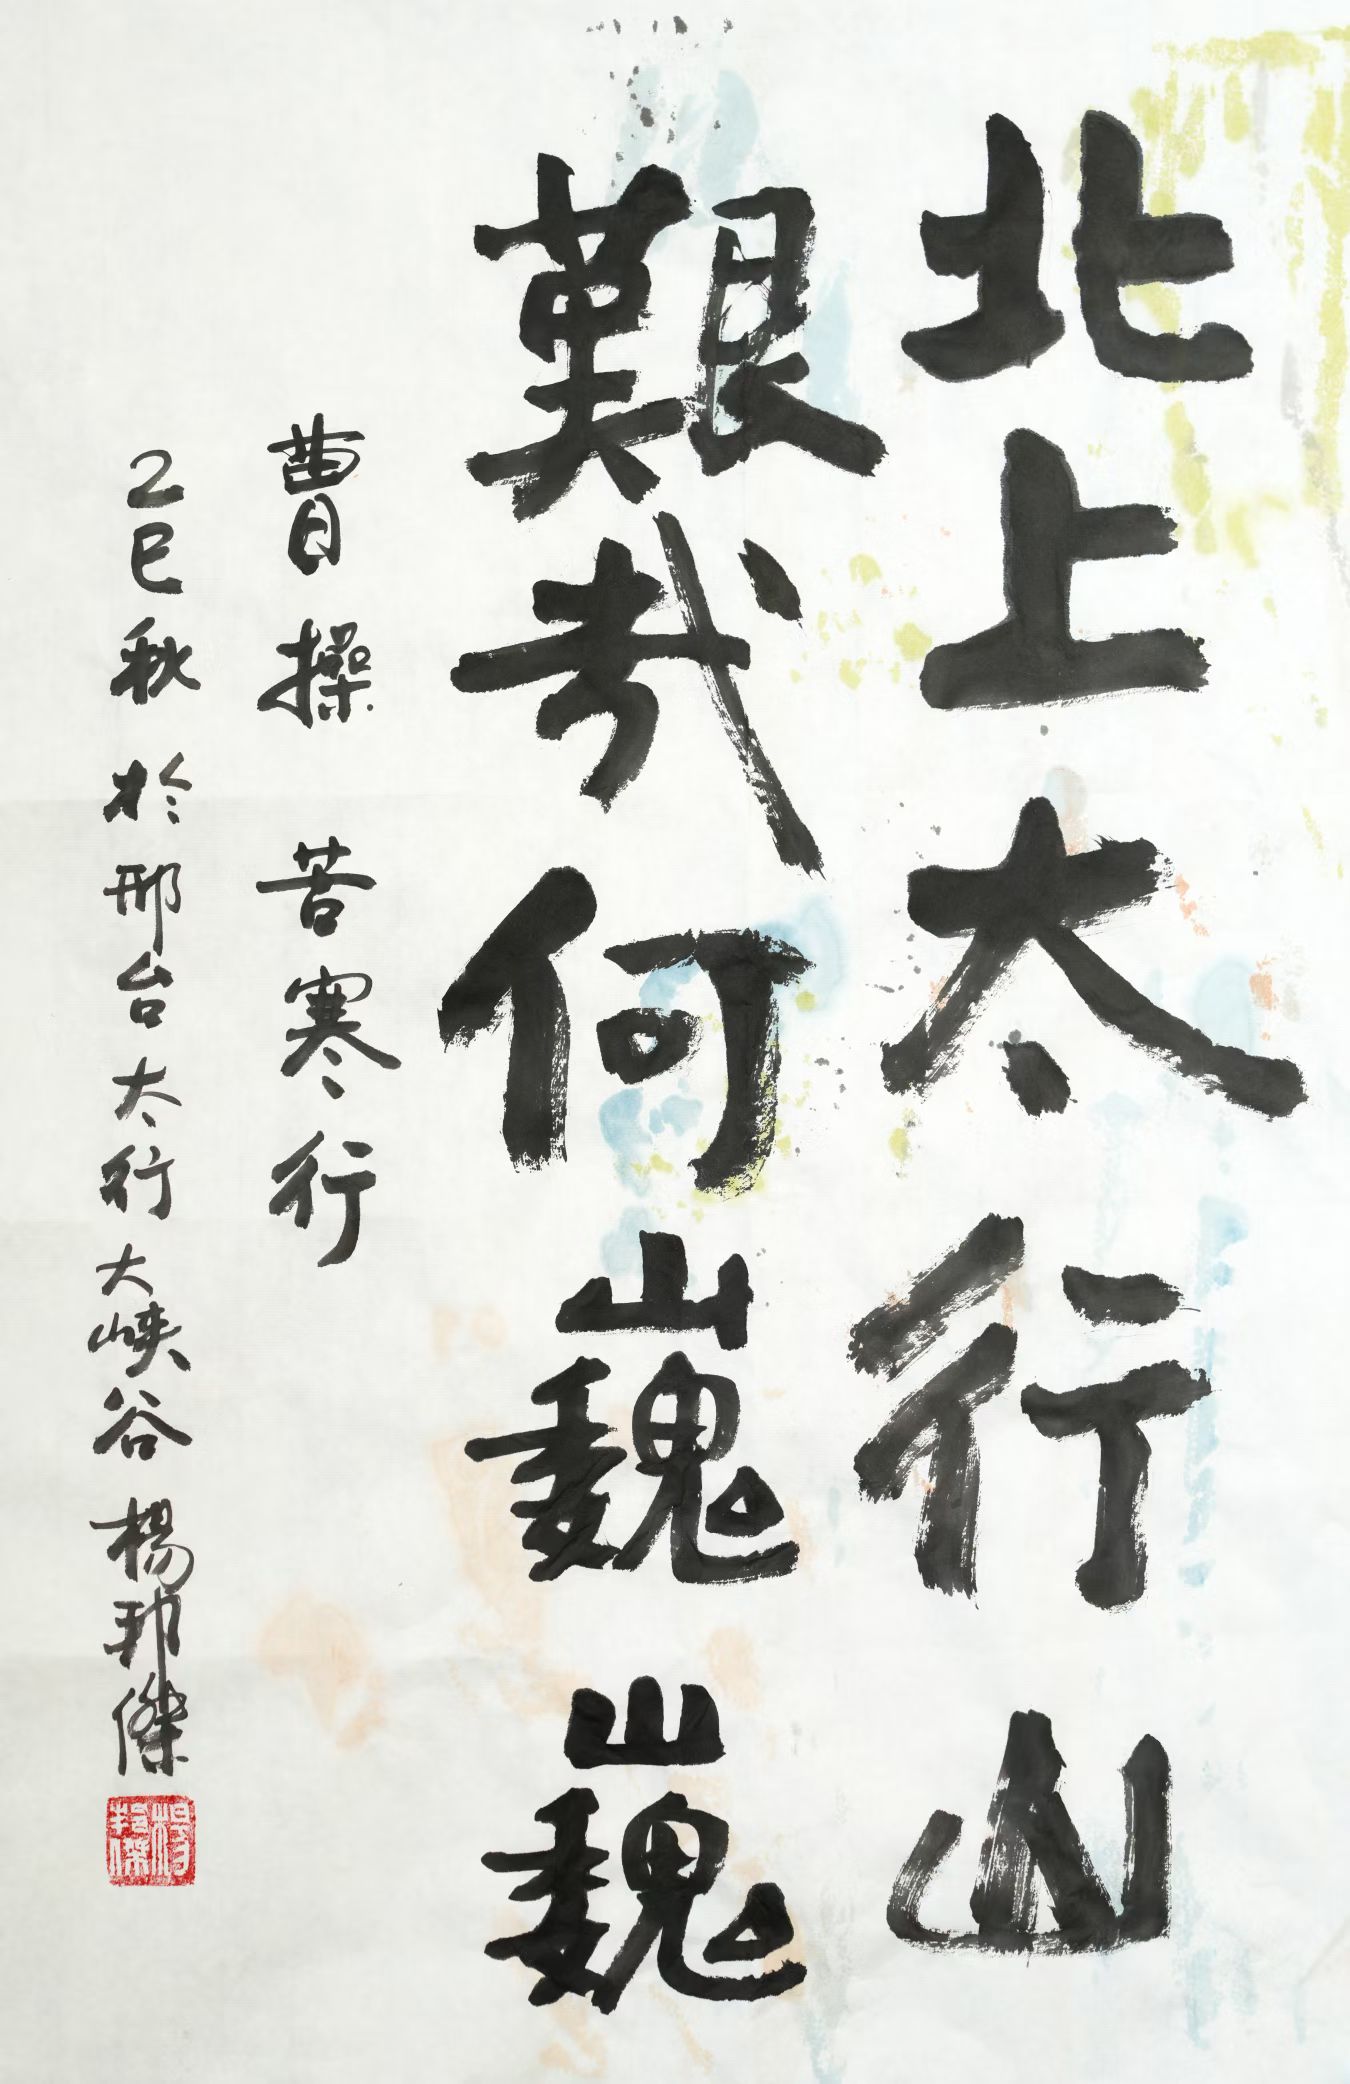 北上太行山
艱哉何巍巍
曹操 苦寒行
乙巳秋 於邢台太行大峽谷 楊邦傑